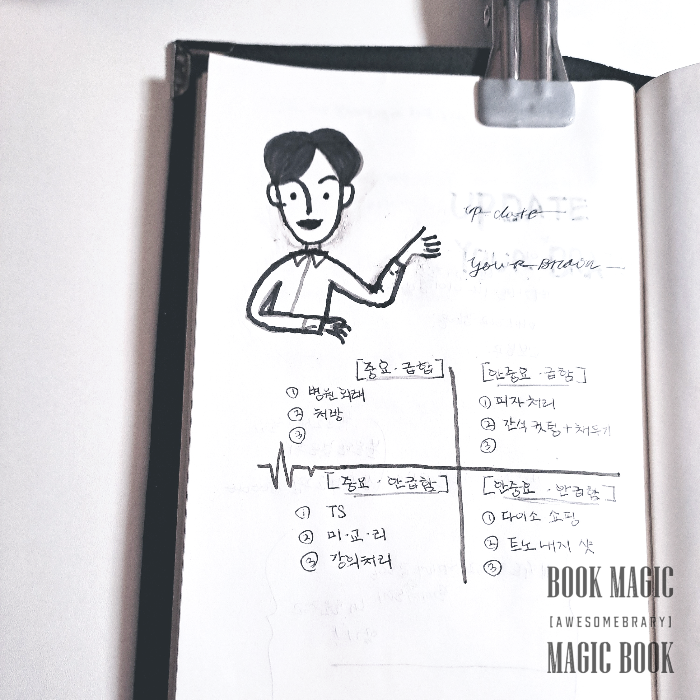 up date
your brain
[중요·급함]
① 병원 외래
② 처방
③
[안중요·급함]
① 피자 처리
② 간식 컷팅 + 채우기
③
[중요·안급함]
① TS
② 미·교·리
③ 강의처리
[안중요·안급함]
① 다이소 쇼핑
② 트노 내지 샷
③
BOOK MAGIC
[AWESOMEBRARY]
MAGIC BOOK